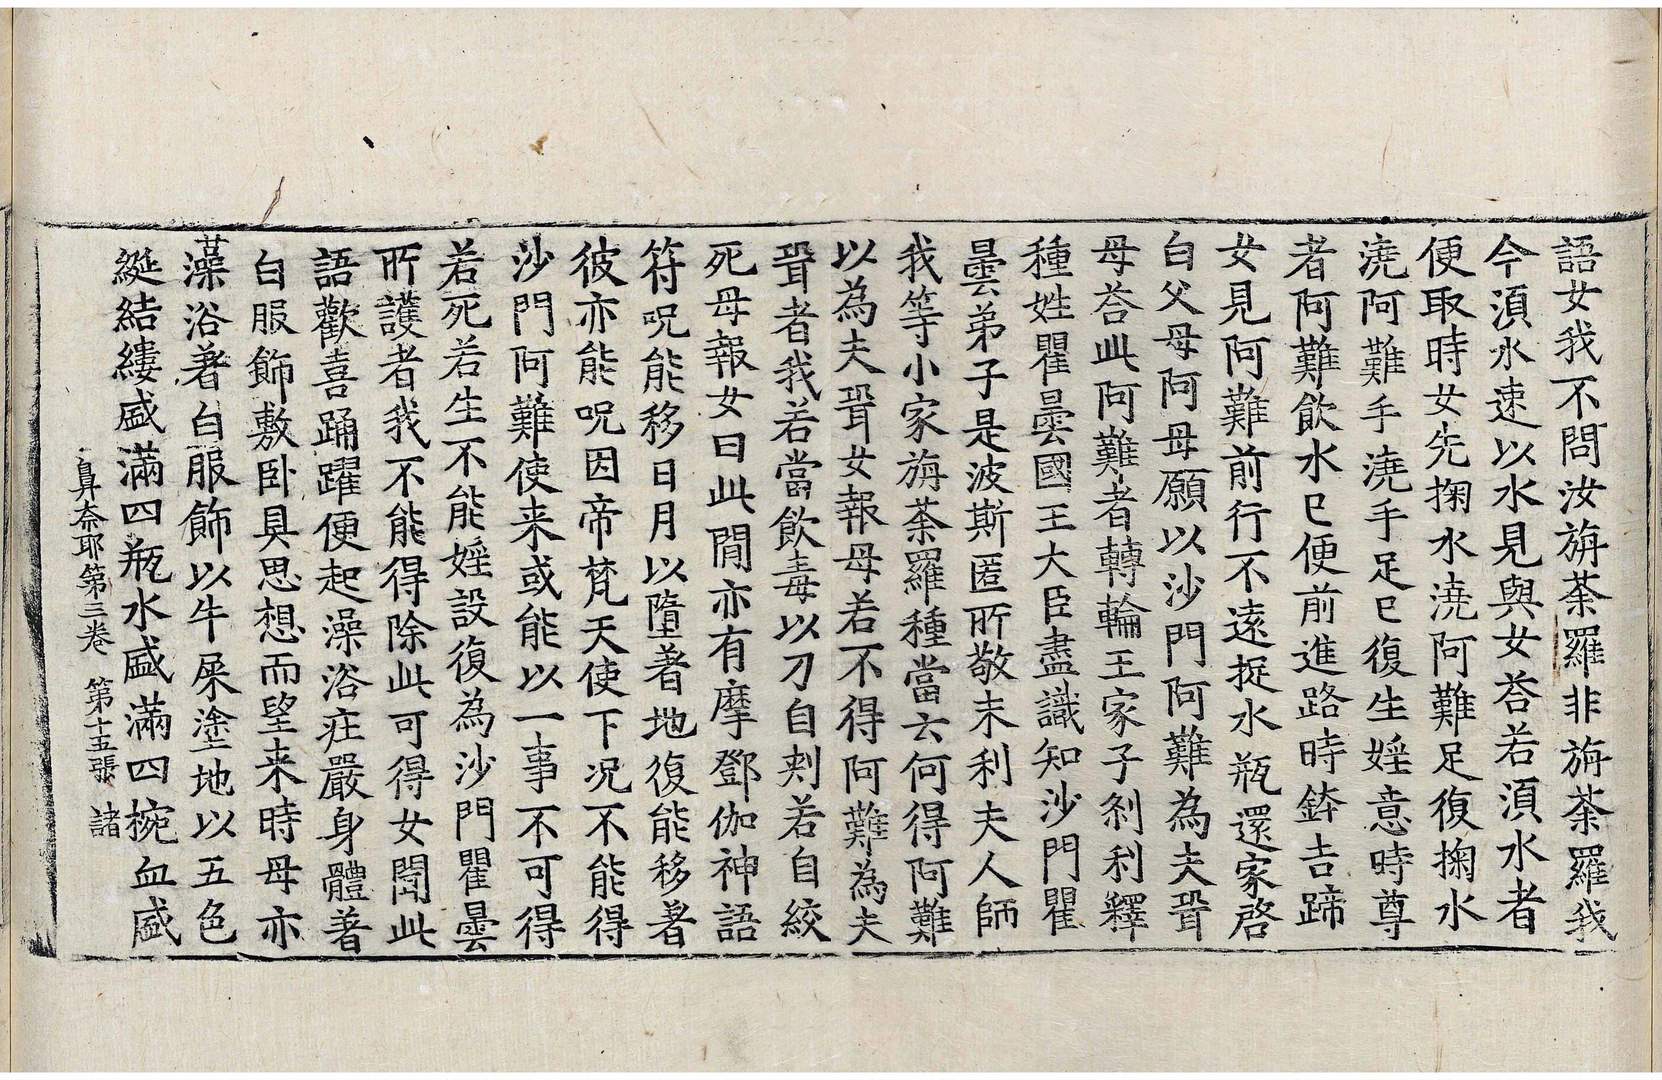 語女我不問汝旃荼羅非旃荼羅我
今湏水速以水見與女荅若湏水者
便取時女先掬水澆阿難足復掬水
澆阿難手澆手足已復生婬意時尊
者阿難飲水已便前進路時鉢吉蹄
女見阿難前行不遠捉水瓶還家啓
白父母阿母願以沙門阿難為夫壻
母荅此阿難者轉輪王家子剎利釋
種姓瞿曇國王大臣盡識知沙門瞿
曇弟子是波斯匿所敬末利夫人師
我等小家旃荼羅種當云何得阿難
以為夫壻女報母若不得阿難為夫
壻者我若當飲毒以刀自刾若自絞
死母報女曰此閒亦有摩鄧伽神語
符呪能移日月以墮著地復能移著
彼亦能呪因帝梵天使下况不能得
沙門阿難使来或能以一事不可得
若死若生不能婬設復為沙門瞿曇
所護者我不能得除此可得女聞此
語歡喜踊躍便起澡浴庄嚴身體著
白服飾敷卧具思想而望来時母亦
藻浴著白服飾以牛屎塗地以五色
綖結縷盛滿四瓶水盛滿四椀血盛
鼻奈耶第三卷 第十五張 諸